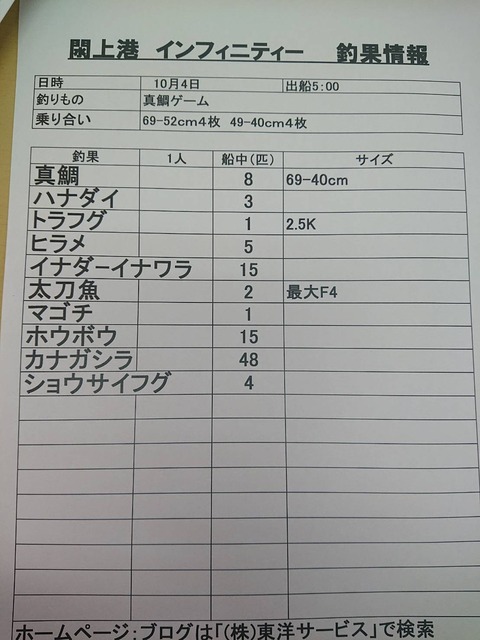 閖上港 インフィニティー 釣果情報
日時 10月4日 出船5:00
釣りもの 真鯛ゲーム
乗り合い 69-52cm4枚 49-40cm4枚
釣果 1人 船中(匹) サイズ
真鯛 8 69-40cm
ハナダイ 3
トラフグ 1 2.5K
ヒラメ 5
イナダーイナワラ 15
太刀魚 2 最大F4
マゴチ 1
ホウボウ 15
カナガシラ 48
ショウサイフグ 4
ホームページ:ブログは「(株)東洋サービス」で検索